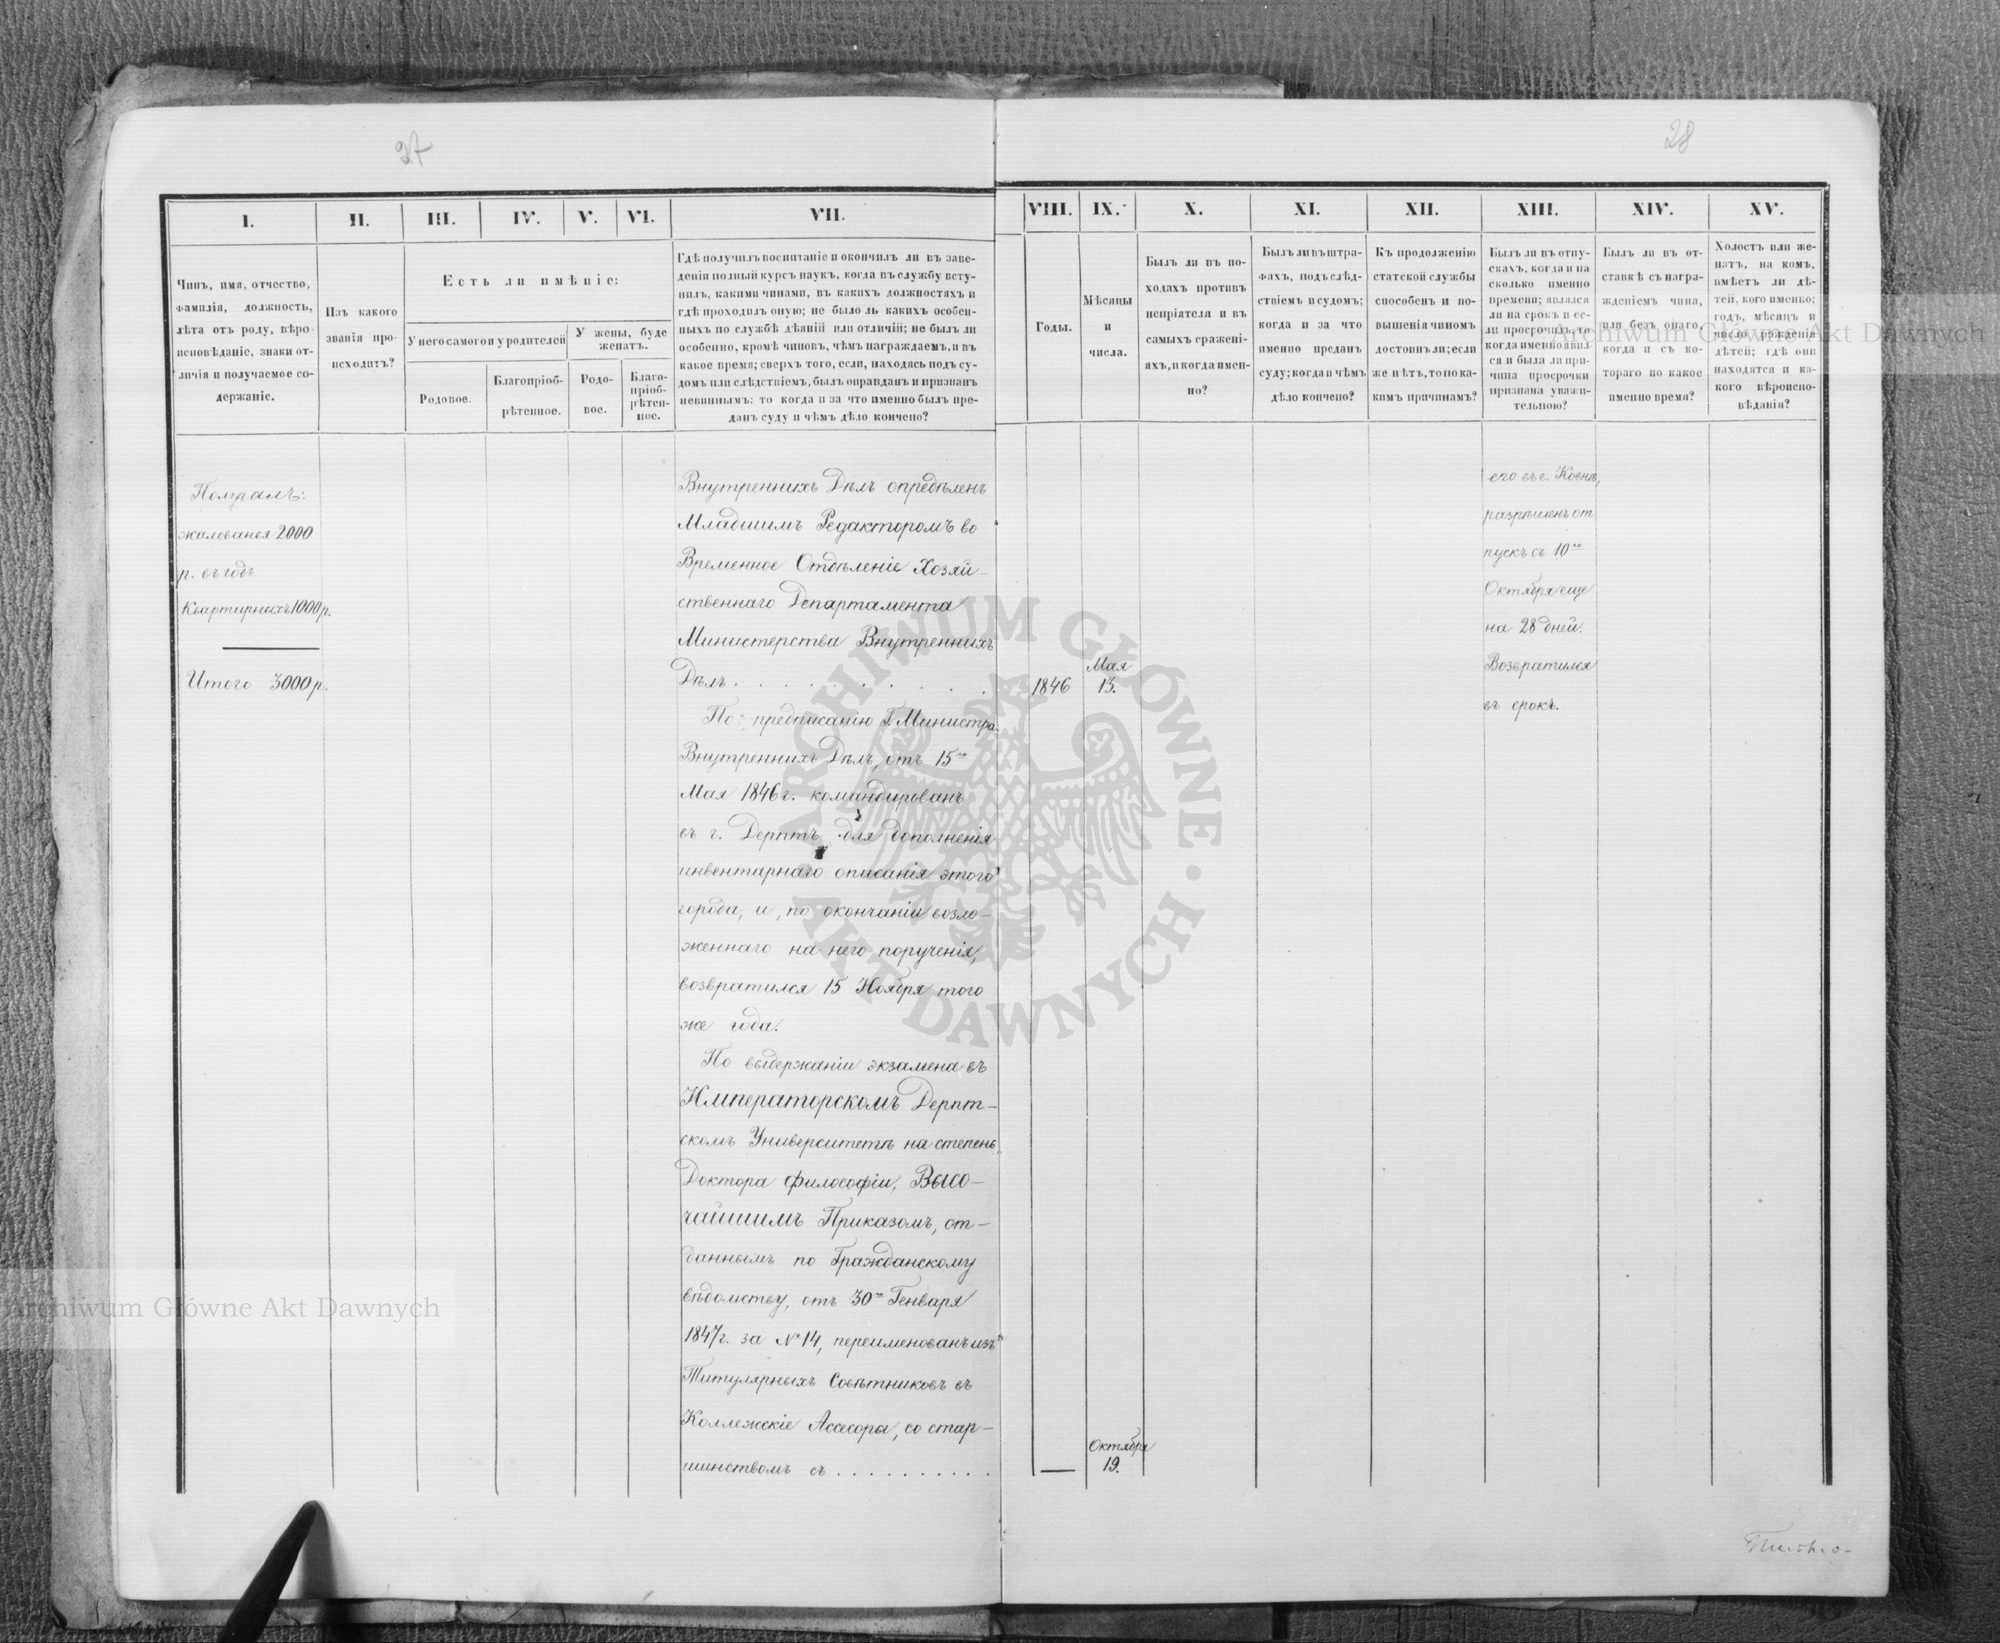 27
28
I.
II.
III.
IV.
V.
VI.
VII.
VIII.
IX.
X.
XI.
XII.
XIII.
XIV.
XV.
Чинъ, имя, отчество,
фамилія, должность,
лѣта отъ роду, вѣро-
исповѣданіе, знаки от-
личія и получаемое со-
держаніе.
Изъ какого
званія про-
исходитъ?
Есть ли имѣніе:
У него самого и у родителей
У жены, буде
женатъ.
Родовое.
Благопріоб-
рѣтенное.
Родо-
вое.
Благо-
пріоб-
рѣтен-
ное.
Гдѣ получилъ воспитаніе и окончилъ ли въ заве-
деніи полный курсъ наукъ, когда въ службу всту-
пилъ, какими чинами, въ какихъ должностяхъ и
гдѣ проходилъ оную; не было ль какихъ особен-
ныхъ по службѣ дѣяній или отличій; не былъ ли
особенно, кромѣ чиновъ, чѣмъ награждаемъ, и въ
какое время; сверхъ того, если, находясь подъ су-
домъ или слѣдствіемъ, былъ оправданъ и признанъ
невиннымъ: то когда и за что именно былъ пре-
данъ суду и чѣмъ дѣло кончено?
Годы.
Мѣсяцы
и
числа.
Былъ ли въ по-
ходахъ противъ
непріятеля и въ
самыхъ сражені-
яхъ, и когда имен-
но?
Былъ ли въ штра-
фахъ, подъ слѣд-
ствіемъ и судомъ;
когда и за что
именно преданъ
суду; когда и чѣмъ
дѣло кончено?
Къ продолженію
статской службы
способенъ и по-
вышенія чиномъ
достоинъ ли; если
же нѣтъ, то по ка-
кимъ причинамъ?
Былъ ли въ отпу-
скахъ, когда и на
сколько именно
времени; являлся
ли на срокъ и ес-
ли просрочилъ, то
когда именно явил-
ся и была ли при-
чина просрочки
признана уважи-
тельною?
Былъ ли въ от-
ставкѣ съ награ-
жденіемъ чина,
или безъ онаго,
когда и съ ко-
тораго по какое
именно время?
Холостъ или же-
натъ, на комъ,
имѣетъ ли дѣ-
тей, кого именно;
годъ, мѣсяцъ и
число рожденія
дѣтей; гдѣ они
находятся и ка-
кого вѣроиспо-
вѣданія?
жалованья 2000
р. въ годъ.
Квартирныхъ 1000 р.
Итого 3000 р.
Внутреннихъ Дѣлъ опредѣленъ
Младшимъ Редакторомъ во
Временное Отдѣленіе Хозяй-
ственнаго Департамента
Министерства Внутреннихъ
Дѣлъ . . . . . . . . .
1846
Мая
13.
По предписанію Г. Министра
Внутреннихъ Дѣлъ, отъ 15го
Мая 1846 г. командированъ
въ г. Дерптъ для дополненія
инвентарнаго описанія этого
города, и, по окончаніи возло-
женнаго на него порученія,
возвратился 15 Ноября того
же года.
По выдержаніи экзамена въ
Императорскомъ Дерпт-
скомъ Университетѣ на степень
Доктора философіи, Высо-
чайшимъ Приказомъ, от-
даннымъ по Гражданскому
вѣдомству, отъ 30го Генваря
1847 г. за № 14, переименованъ изъ
Титулярныхъ Совѣтниковъ въ
Коллежскіе Ассесоры, со стар-
шинствомъ съ . . . . . . . . . .
—
Октября
19.
его въ г.
разрѣшенъ от
пускъ съ 10го
Октября еще
на 28 дней.
Возвратился
въ срокъ.
Archiwum Główne Akt Dawnych
Archiwum Główne Akt Dawnych
ARCHIWUM GŁÓWNE AKT DAWNYCH